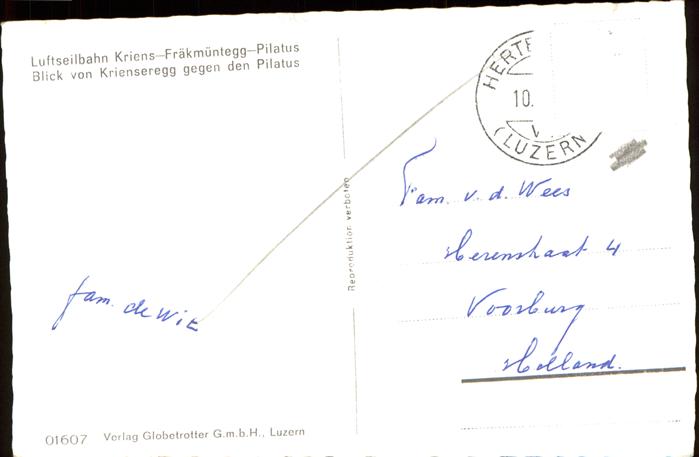 Luftseilbahn Kriens—Fräkmüntegg—Pilatus
Blick von Krienseregg gegen den Pilatus
fam. de Wit
01607 Verlag Globetrotter G.m.b.H., Luzern
Reproduktion verboten
HERTE
10.
(LUZERN
Fam. v. d. Wees
Herenstraat 4
Voorburg
Holland.